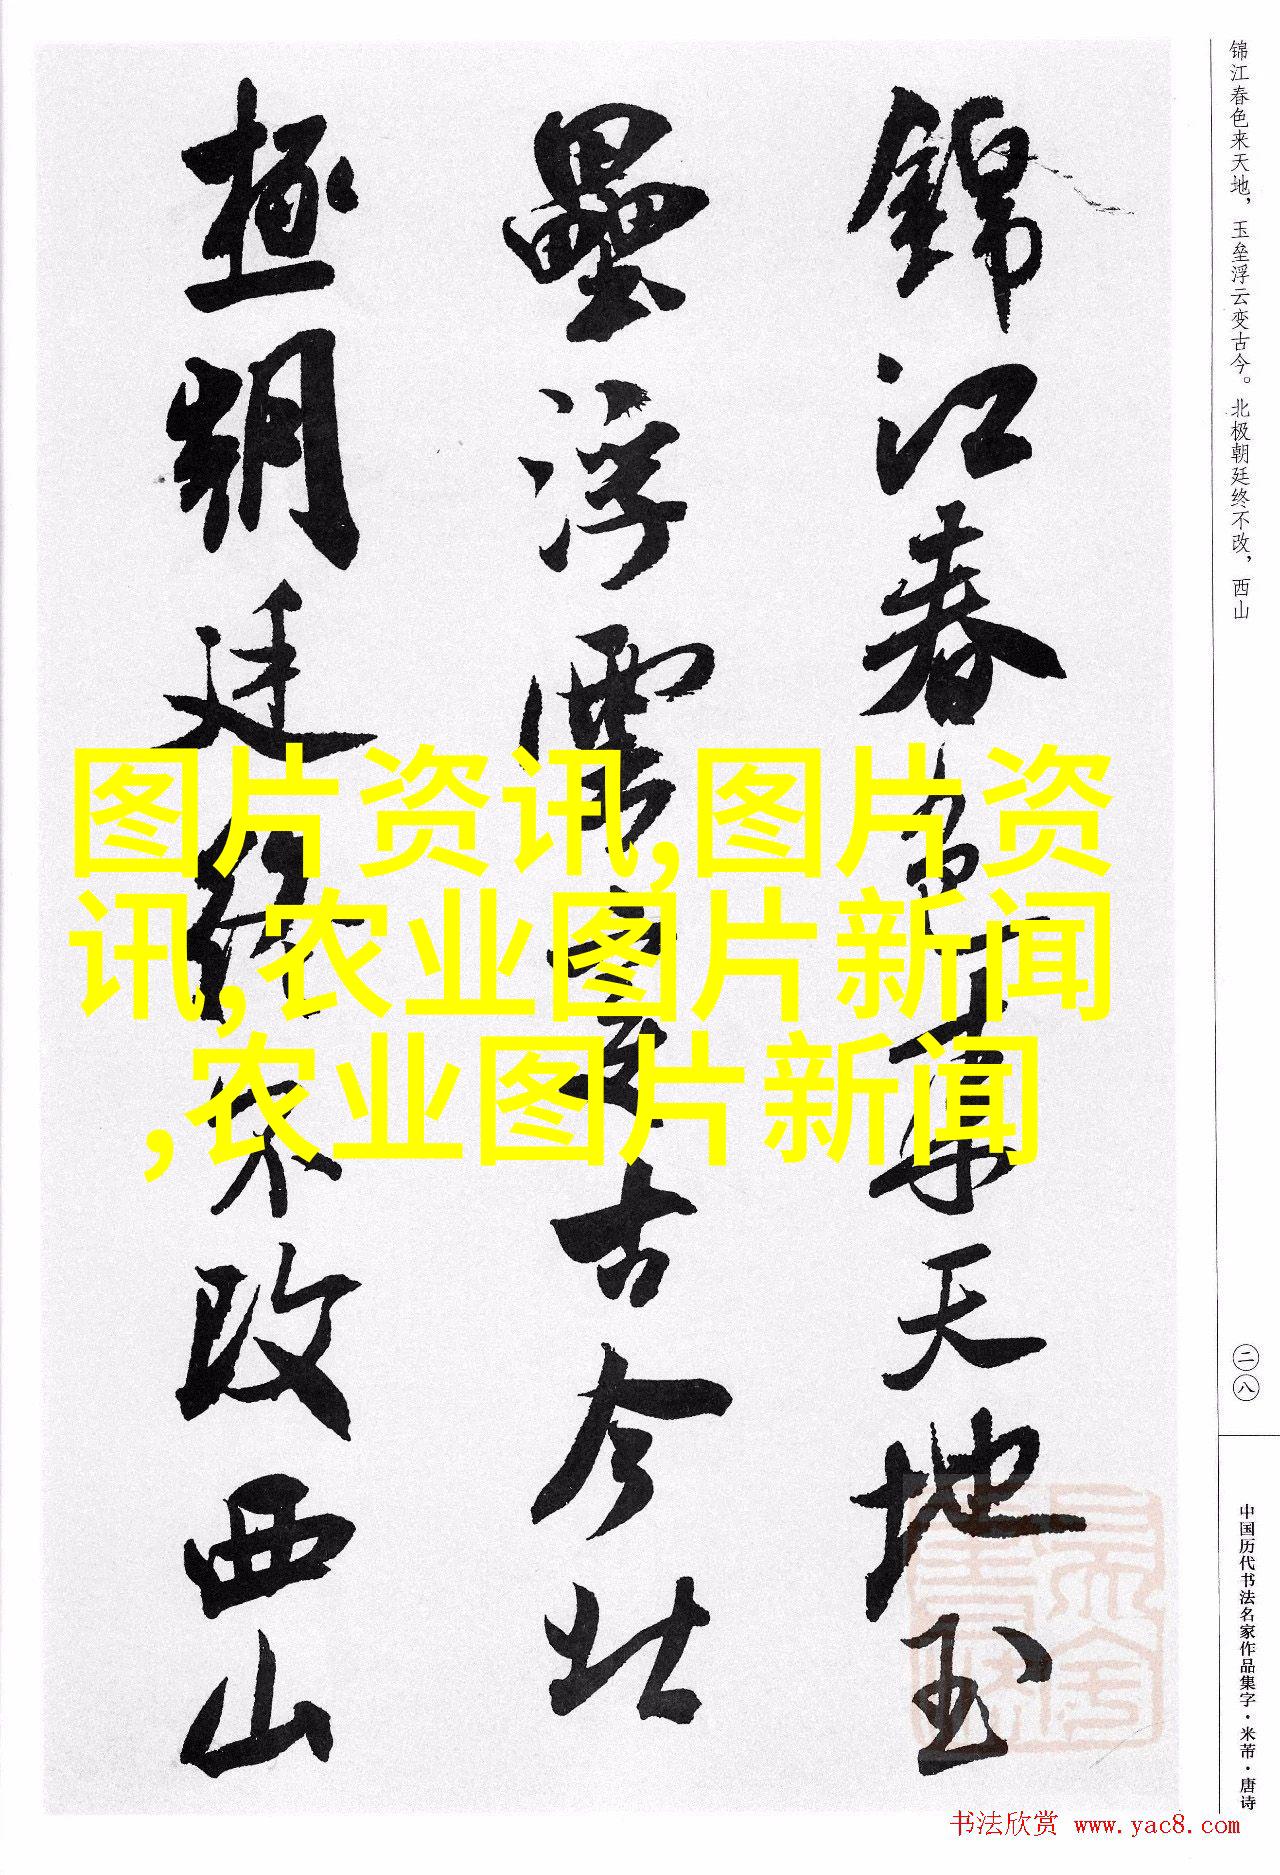 锦江春色来天地，玉垒浮云变古今。北极朝廷终不改，西山
錦江春色来天地玉
壘浮雲变古今北
極朝廷終不改西山
图片资讯,图片资
讯,农业图片新闻
,农业图片新闻
二八
中国历代书法名家作品集字·米芾·唐诗
书法欣赏 www.yac8.com